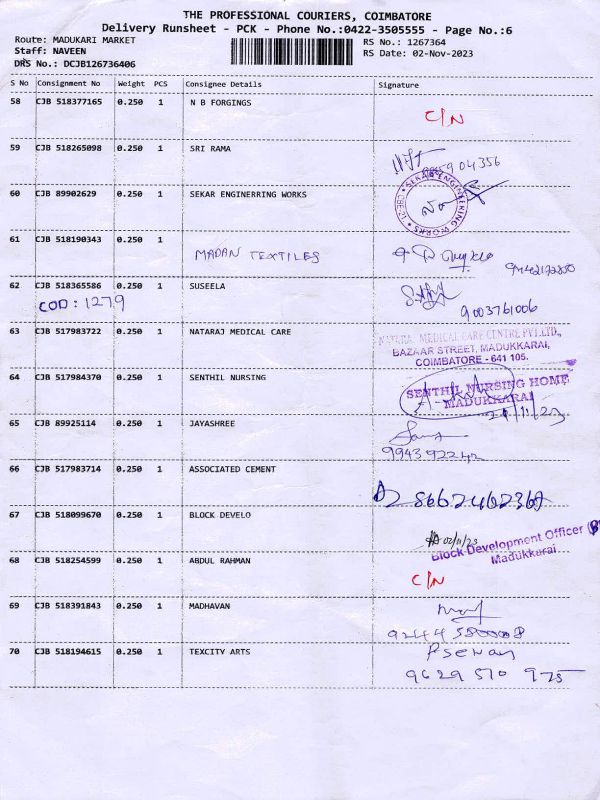 THE PROFESSIONAL COURIERS, COIMBATORE
Delivery Runsheet - PCK - Phone No.:0422-3505555 - Page No.:6
Route: MADUKARI MARKET RS No.: 1267364
Staff: NAVEEN RS Date: 02-Nov-2023
DRS No.: DCJB126736406
S No Consignment No Weight PCS Consignee Details Signature
58 CJB 518377165 0.250 1 N B FORGINGS C/N
59 CJB 518265098 0.250 1 SRI RAMA
60 CJB 89902629 0.250 1 SEKAR ENGINERRING WORKS SEKAR ENGINEERING WORKS
61 CJB 518190343 0.250 1 MADAN TEXTILES
62 CJB 518365586 0.250 1 SUSEELA
COD: 1279 9003761006
63 CJB 517983722 0.250 1 NATARAJ MEDICAL CARE MEDICAL CARE CENTRE PVT.LTD.,
BAZAAR STREET, MADUKKARAI,
COIMBATORE - 641 105.
64 CJB 517984370 0.250 1 SENTHIL NURSING SENTHIL NURSING HOME
MADUKKARAI
65 CJB 89925114 0.250 1 JAYASHREE
66 CJB 517983714 0.250 1 ASSOCIATED CEMENT
67 CJB 518099670 0.250 1 BLOCK DEVELO 02/11/23
Block Development Officer
Madukkarai
68 CJB 518254599 0.250 1 ABDUL RAHMAN C/N
69 CJB 518391843 0.250 1 MADHAVAN
70 CJB 518194615 0.250 1 TEXCITY ARTS
9629 510 975